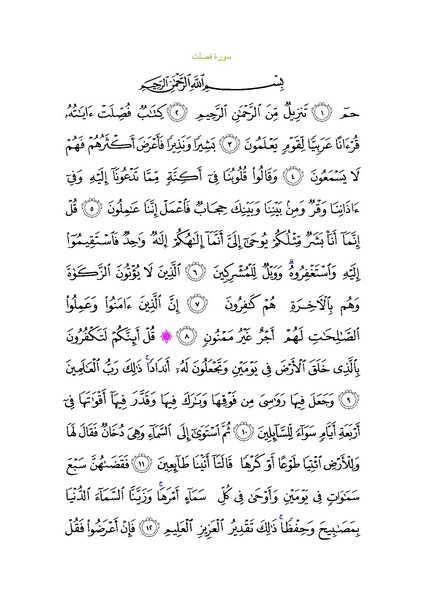 سورة فصلت
بِسْمِ ٱللَّهِ ٱلرَّحْمَٰنِ ٱلرَّحِيمِ
حمٓ ﴿١﴾ تَنزِيلٌ مِّنَ ٱلرَّحْمَٰنِ ٱلرَّحِيمِ ﴿٢﴾ كِتَٰبٌ فُصِّلَتْ ءَايَٰتُهُۥ
قُرْءَانًا عَرَبِيًّا لِّقَوْمٍ يَعْلَمُونَ ﴿٣﴾ بَشِيرًا وَنَذِيرًا فَأَعْرَضَ أَكْثَرُهُمْ فَهُمْ
لَا يَسْمَعُونَ ﴿٤﴾ وَقَالُوا۟ قُلُوبُنَا فِىٓ أَكِنَّةٍ مِّمَّا تَدْعُونَآ إِلَيْهِ وَفِىٓ
ءَاذَانِنَا وَقْرٌ وَمِنۢ بَيْنِنَا وَبَيْنِكَ حِجَابٌ فَٱعْمَلْ إِنَّنَا عَٰمِلُونَ ﴿٥﴾ قُلْ
إِنَّمَآ أَنَا۠ بَشَرٌ مِّثْلُكُمْ يُوحَىٰٓ إِلَىَّ أَنَّمَآ إِلَٰهُكُمْ إِلَٰهٌ وَٰحِدٌ فَٱسْتَقِيمُوٓا۟
إِلَيْهِ وَٱسْتَغْفِرُوهُ ۗ وَوَيْلٌ لِّلْمُشْرِكِينَ ﴿٦﴾ ٱلَّذِينَ لَا يُؤْتُونَ ٱلزَّكَوٰةَ
وَهُم بِٱلْءَاخِرَةِ هُمْ كَٰفِرُونَ ﴿٧﴾ إِنَّ ٱلَّذِينَ ءَامَنُوا۟ وَعَمِلُوا۟
ٱلصَّٰلِحَٰتِ لَهُمْ أَجْرٌ غَيْرُ مَمْنُونٍ ﴿٨﴾ ۞ قُلْ أَئِنَّكُمْ لَتَكْفُرُونَ
بِٱلَّذِى خَلَقَ ٱلْأَرْضَ فِى يَوْمَيْنِ وَتَجْعَلُونَ لَهُۥٓ أَندَادًا ۚ ذَٰلِكَ رَبُّ ٱلْعَٰلَمِينَ
﴿٩﴾ وَجَعَلَ فِيهَا رَوَٰسِىَ مِن فَوْقِهَا وَبَٰرَكَ فِيهَا وَقَدَّرَ فِيهَآ أَقْوَٰتَهَا فِىٓ
أَرْبَعَةِ أَيَّامٍ سَوَآءً لِّلسَّآئِلِينَ ﴿١٠﴾ ثُمَّ ٱسْتَوَىٰٓ إِلَى ٱلسَّمَآءِ وَهِىَ دُخَانٌ فَقَالَ لَهَا
وَلِلْأَرْضِ ٱئْتِيَا طَوْعًا أَوْ كَرْهًا قَالَتَآ أَتَيْنَا طَآئِعِينَ ﴿١١﴾ فَقَضَىٰهُنَّ سَبْعَ
سَمَٰوَاتٍ فِى يَوْمَيْنِ وَأَوْحَىٰ فِى كُلِّ سَمَآءٍ أَمْرَهَا ۚ وَزَيَّنَّا ٱلسَّمَآءَ ٱلدُّنْيَا
بِمَصَٰبِيحَ وَحِفْظًا ۚ ذَٰلِكَ تَقْدِيرُ ٱلْعَزِيزِ ٱلْعَلِيمِ ﴿١٢﴾ فَإِنْ أَعْرَضُوا۟ فَقُلْ